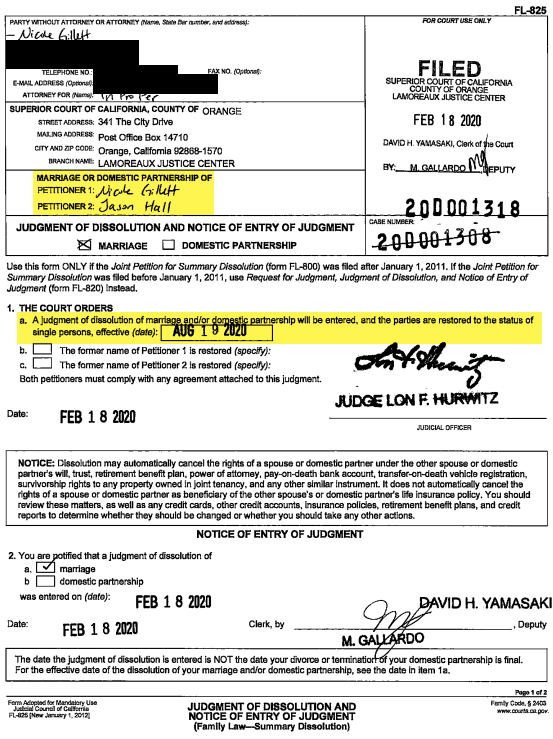 FL-825
PARTY WITHOUT ATTORNEY OR ATTORNEY (Name, State Bar number, and address):
FOR COURT USE ONLY
- Nicole Gillett
TELEPHONE NO.: FAX NO. (Optional):
E-MAIL ADDRESS (Optional):
ATTORNEY FOR (Name): In Pro Per
FILED
SUPERIOR COURT OF CALIFORNIA
COUNTY OF ORANGE
LAMOREAUX JUSTICE CENTER
FEB 18 2020
DAVID H. YAMASAKI, Clerk of the Court
BY: M. GALLARDO DEPUTY
SUPERIOR COURT OF CALIFORNIA, COUNTY OF ORANGE
STREET ADDRESS: 341 The City Drive
MAILING ADDRESS: Post Office Box 14710
CITY AND ZIP CODE: Orange, California 92868-1570
BRANCH NAME: LAMOREAUX JUSTICE CENTER
MARRIAGE OR DOMESTIC PARTNERSHIP OF
PETITIONER 1: Nicole Gillett
PETITIONER 2: Jason Hall
20D001318
JUDGMENT OF DISSOLUTION AND NOTICE OF ENTRY OF JUDGMENT
MARRIAGE DOMESTIC PARTNERSHIP
CASE NUMBER:
20D001308
Use this form ONLY if the Joint Petition for Summary Dissolution (form FL-800) was filed after January 1, 2011. If the Joint Petition for
Summary Dissolution was filed before January 1, 2011, use Request for Judgment, Judgment of Dissolution, and Notice of Entry of
Judgment (form FL-820) instead.
1. THE COURT ORDERS
a. A judgment of dissolution of marriage and/or domestic partnership will be entered, and the parties are restored to the status of
single persons, effective (date): AUG 19 2020
b. The former name of Petitioner 1 is restored (specify):
c. The former name of Petitioner 2 is restored (specify):
Both petitioners must comply with any agreement attached to this judgment.
JUDGE LON F. HURWITZ
Date: FEB 18 2020
JUDICIAL OFFICER
NOTICE: Dissolution may automatically cancel the rights of a spouse or domestic partner under the other spouse or domestic
partner's will, trust, retirement benefit plan, power of attorney, pay-on-death bank account, transfer-on-death vehicle registration,
survivorship rights to any property owned in joint tenancy, and any other similar instrument. It does not automatically cancel the
rights of a spouse or domestic partner as beneficiary of the other spouse's or domestic partner's life insurance policy. You should
review these matters, as well as any credit cards, other credit accounts, insurance policies, retirement benefit plans, and credit
reports to determine whether they should be changed or whether you should take any other actions.
NOTICE OF ENTRY OF JUDGMENT
2. You are notified that a judgment of dissolution of
a. marriage
b domestic partnership
was entered on (date): FEB 18 2020
DAVID H. YAMASAKI
Date: FEB 18 2020 Clerk, by , Deputy
M. GALLARDO
The date the judgment of dissolution is entered is NOT the date your divorce or termination of your domestic partnership is final.
For the effective date of the dissolution of your marriage and/or domestic partnership, see the date in item 1a.
Page 1 of 2
Form Adopted for Mandatory Use
Judicial Council of California
FL-825 [New January 1, 2012]
JUDGMENT OF DISSOLUTION AND
NOTICE OF ENTRY OF JUDGMENT
(Family Law—Summary Dissolution)
Family Code, § 2403
www.courts.ca.gov